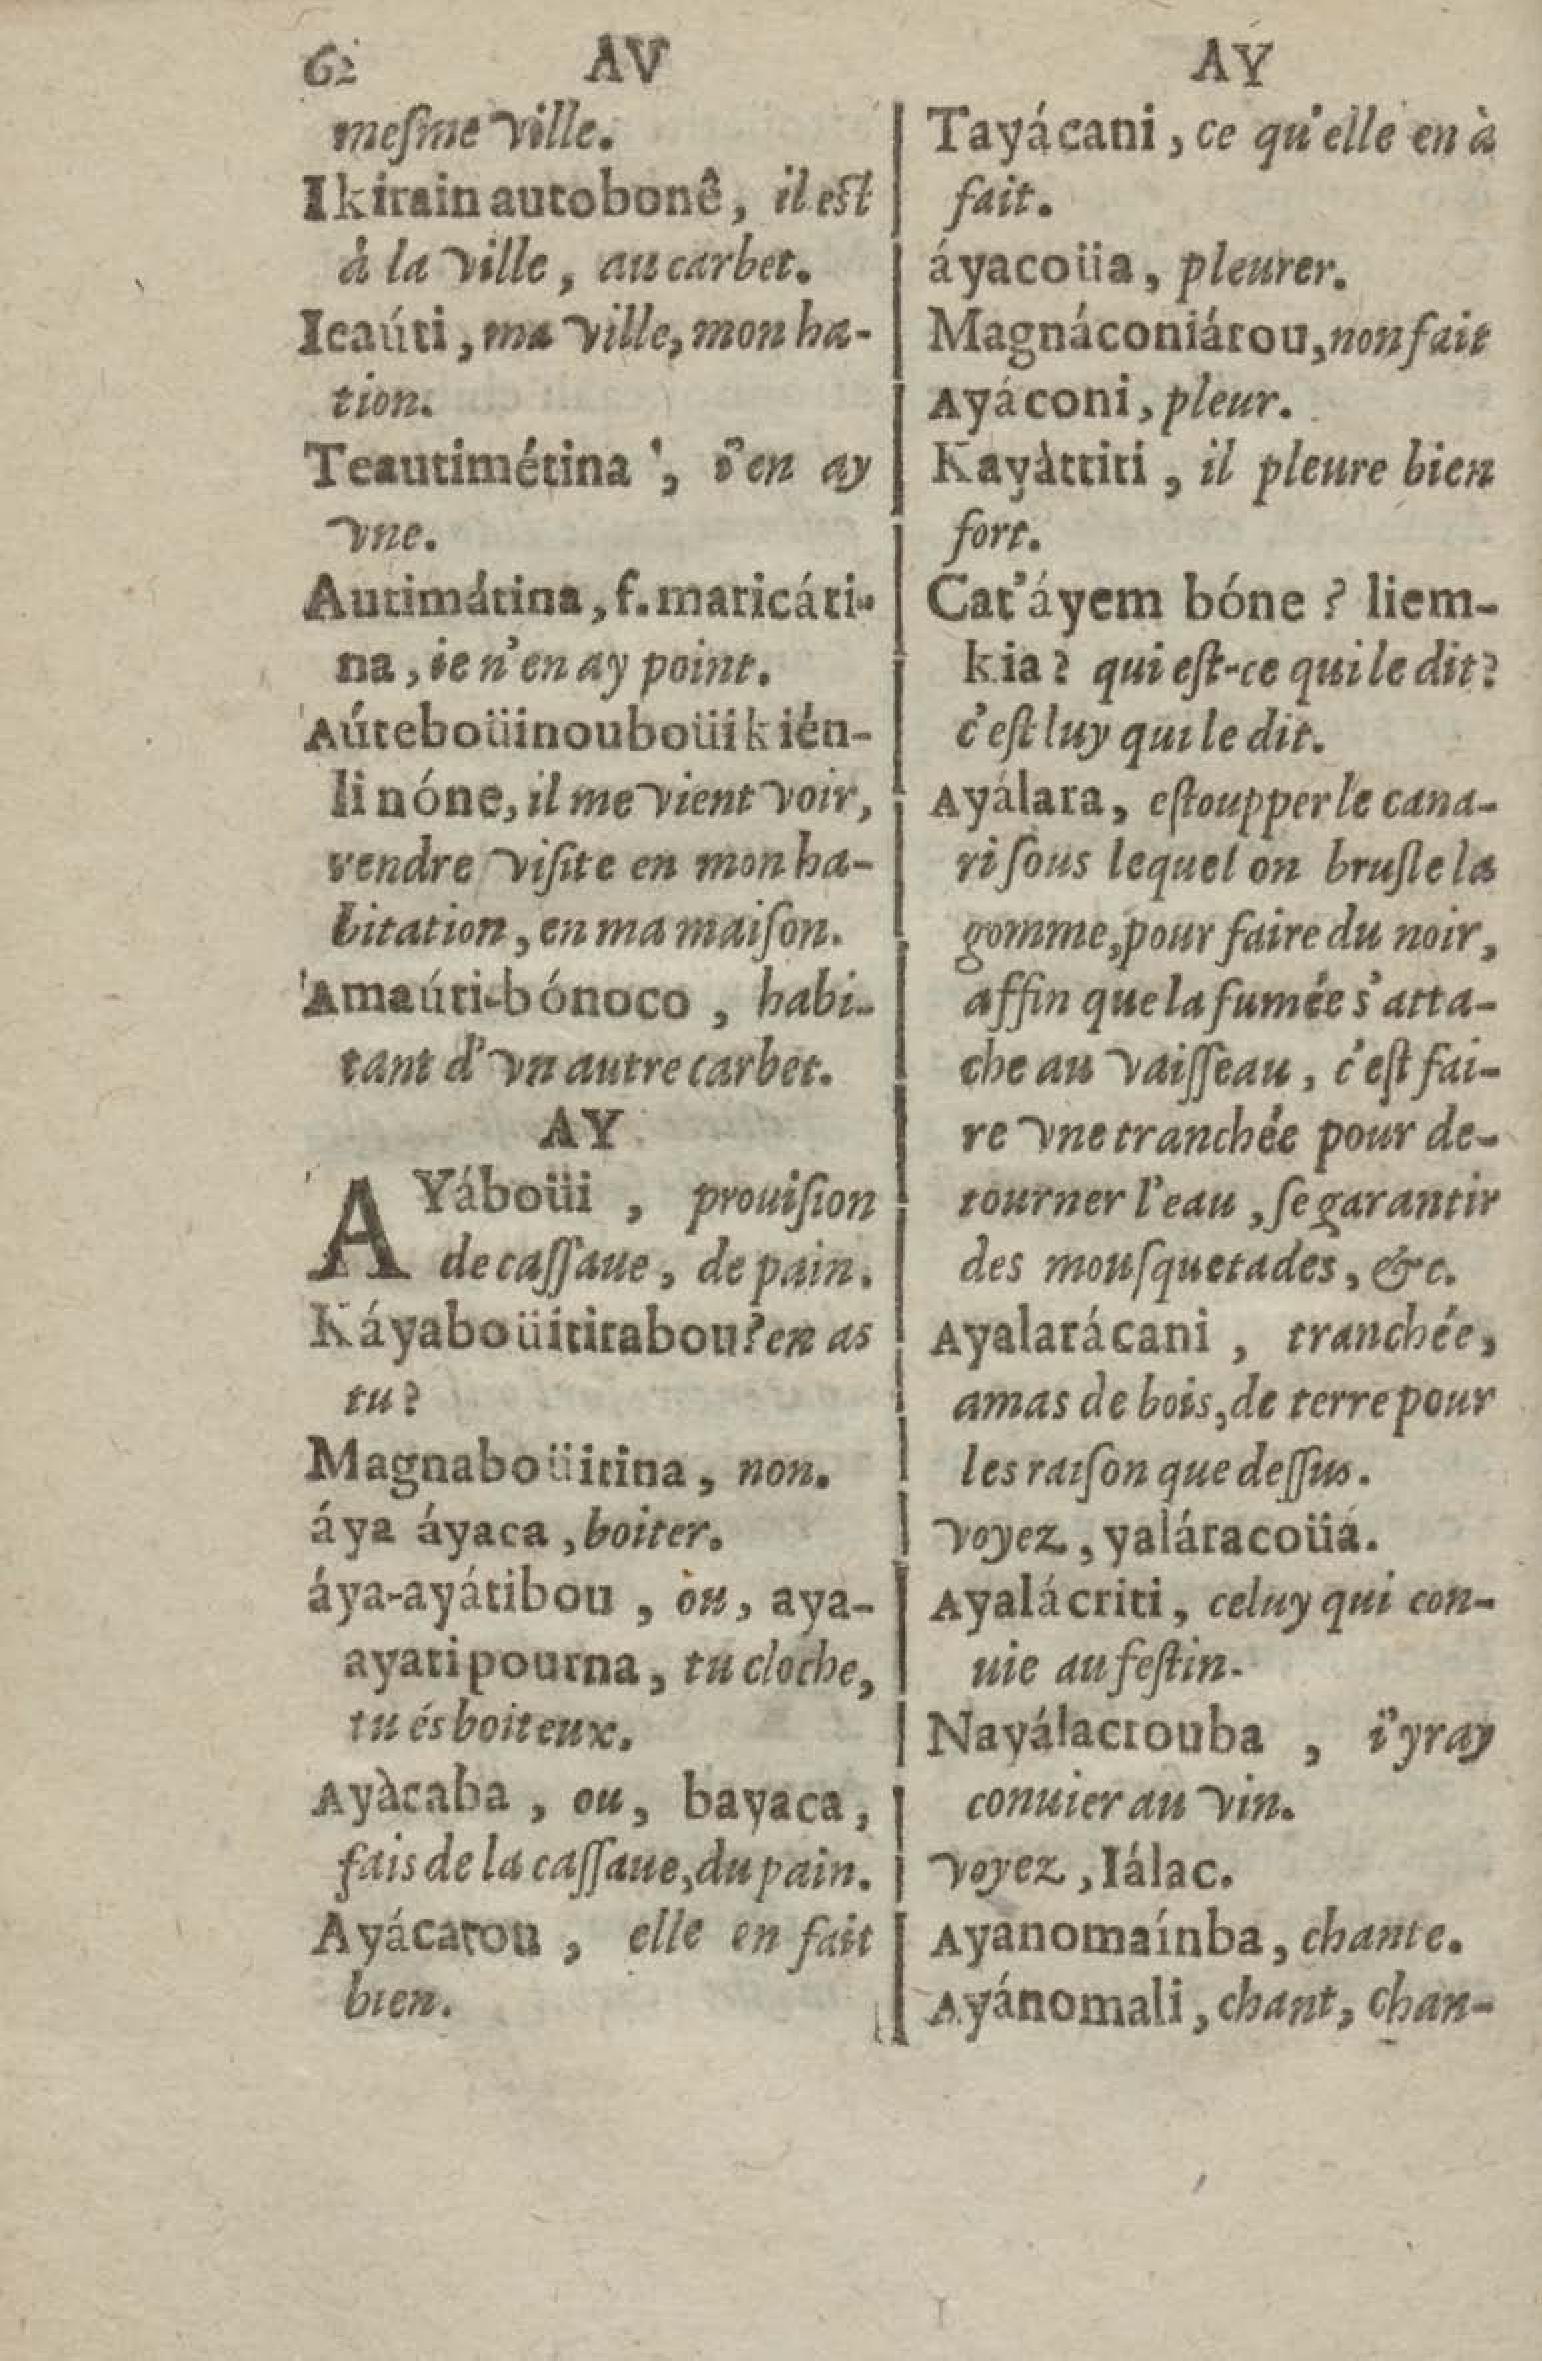 62 AV AY
mesme ville.
Ikirain autobonê, il est
à la ville, au carbet.
Icaúti, ma ville, mon ha-
tion.
Teautimétina', i'en ay
vne.
Autimátina, f. maticáti-
na, ie n'en ay point.
Aúteboüinouboüikién-
li nóne, il me vient voir,
rendre visite en mon ha-
bitation, en ma maison.
Amaúti-bónoco, habi-
tant d'vn autre carbet.
AY
AYáboüi, prouision
de cassaue, de pain.
Káyaboüititabou? en as
tu?
Magnaboüitina, non.
áya áyaca, boiter.
áya-ayátibou, ou, aya-
ayatipourna, tu cloche,
tu és boiteux.
Ayàcaba, ou, bayaca,
fais de la cassaue, du pain.
Ayácatou, elle en fait
bien.
Tayácani, ce qu'elle en à
fait.
áyacoüa, pleurer.
Magnáconiátou, non fait
Ayáconi, pleur.
Kayàttiti, il pleure bien
fort.
Cat'áyem bóne? liem-
kia? qui est-ce qui le dit?
c'est luy qui le dit.
Ayálara, estoupper le cana-
ri sous lequel on brusle la
gomme, pour faire du noir,
affin que la fumée s'atta-
che au vaisseau, c'est fai-
re vne tranchée pour de-
tourner l'eau, se garantir
des mousquetades, &c.
Ayalarácani, tranchée,
amas de bois, de terre pour
les raison que dessus.
voyez, yaláracoüá.
Ayalácriti, celuy qui con-
uie au festin.
Nayálacrouba, i'yray
conuier au vin.
voyez, Iálac.
Ayanomaínba, chante.
Ayánomali, chant, chan-